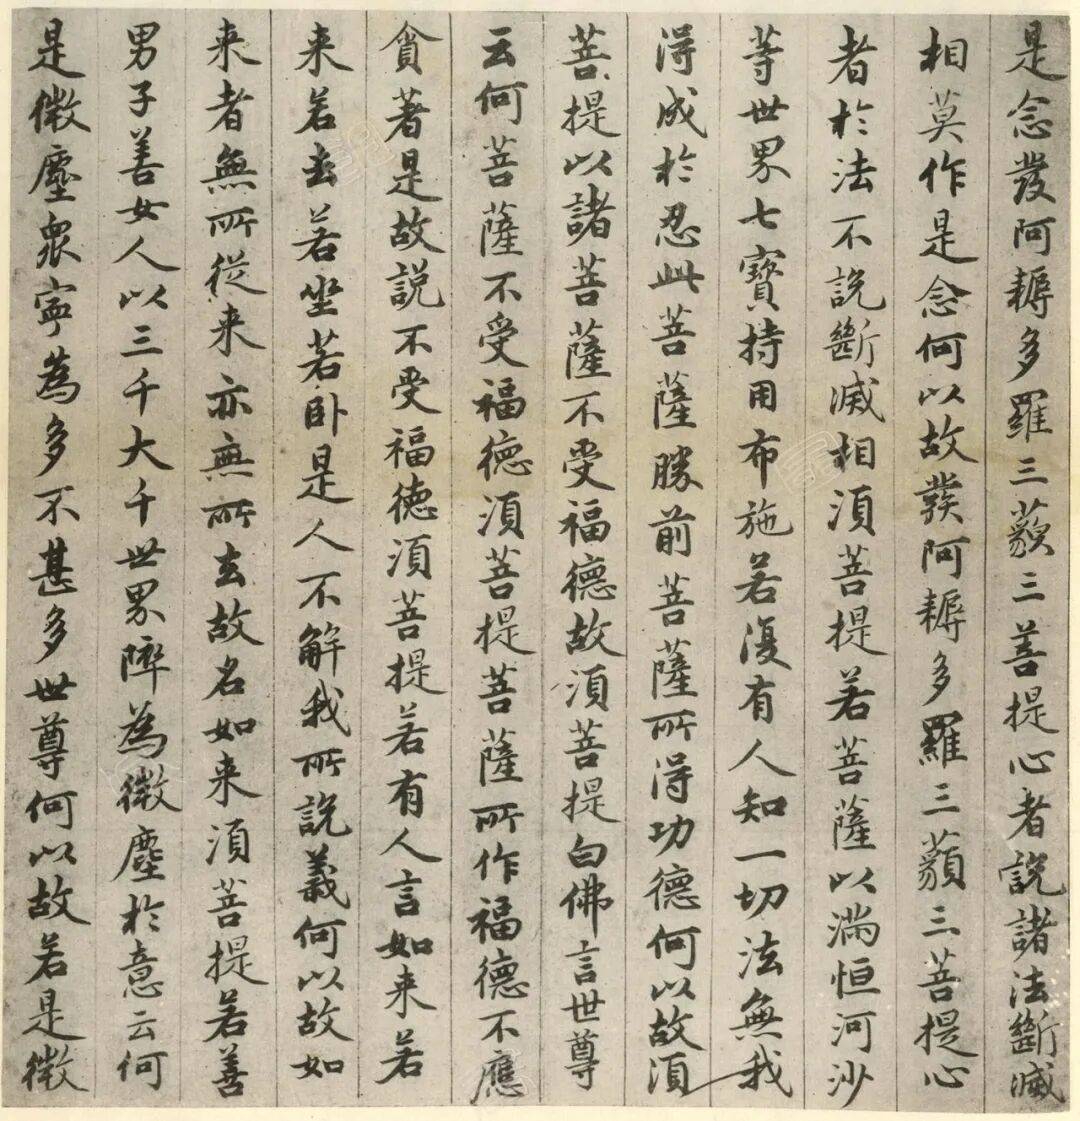 是念發阿耨多羅三藐三菩提心者說諸法斷滅
相莫作是念何以故發阿耨多羅三藐三菩提心
者於法不說斷滅相須菩提若菩薩以滿恒河沙
等世界七寶持用布施若復有人知一切法無我
得成於忍此菩薩勝前菩薩所得功德何以故須
菩提以諸菩薩不受福德故須菩提白佛言世尊
云何菩薩不受福德須菩提菩薩所作福德不應
貪著是故說不受福德須菩提若有人言如来若
来若去若坐若卧是人不解我所說義何以故如
来者無所從来亦無所去故名如来須菩提若善
男子善女人以三千大千世界碎為微塵於意云何
是微塵眾寧為多不甚多世尊何以故若是微